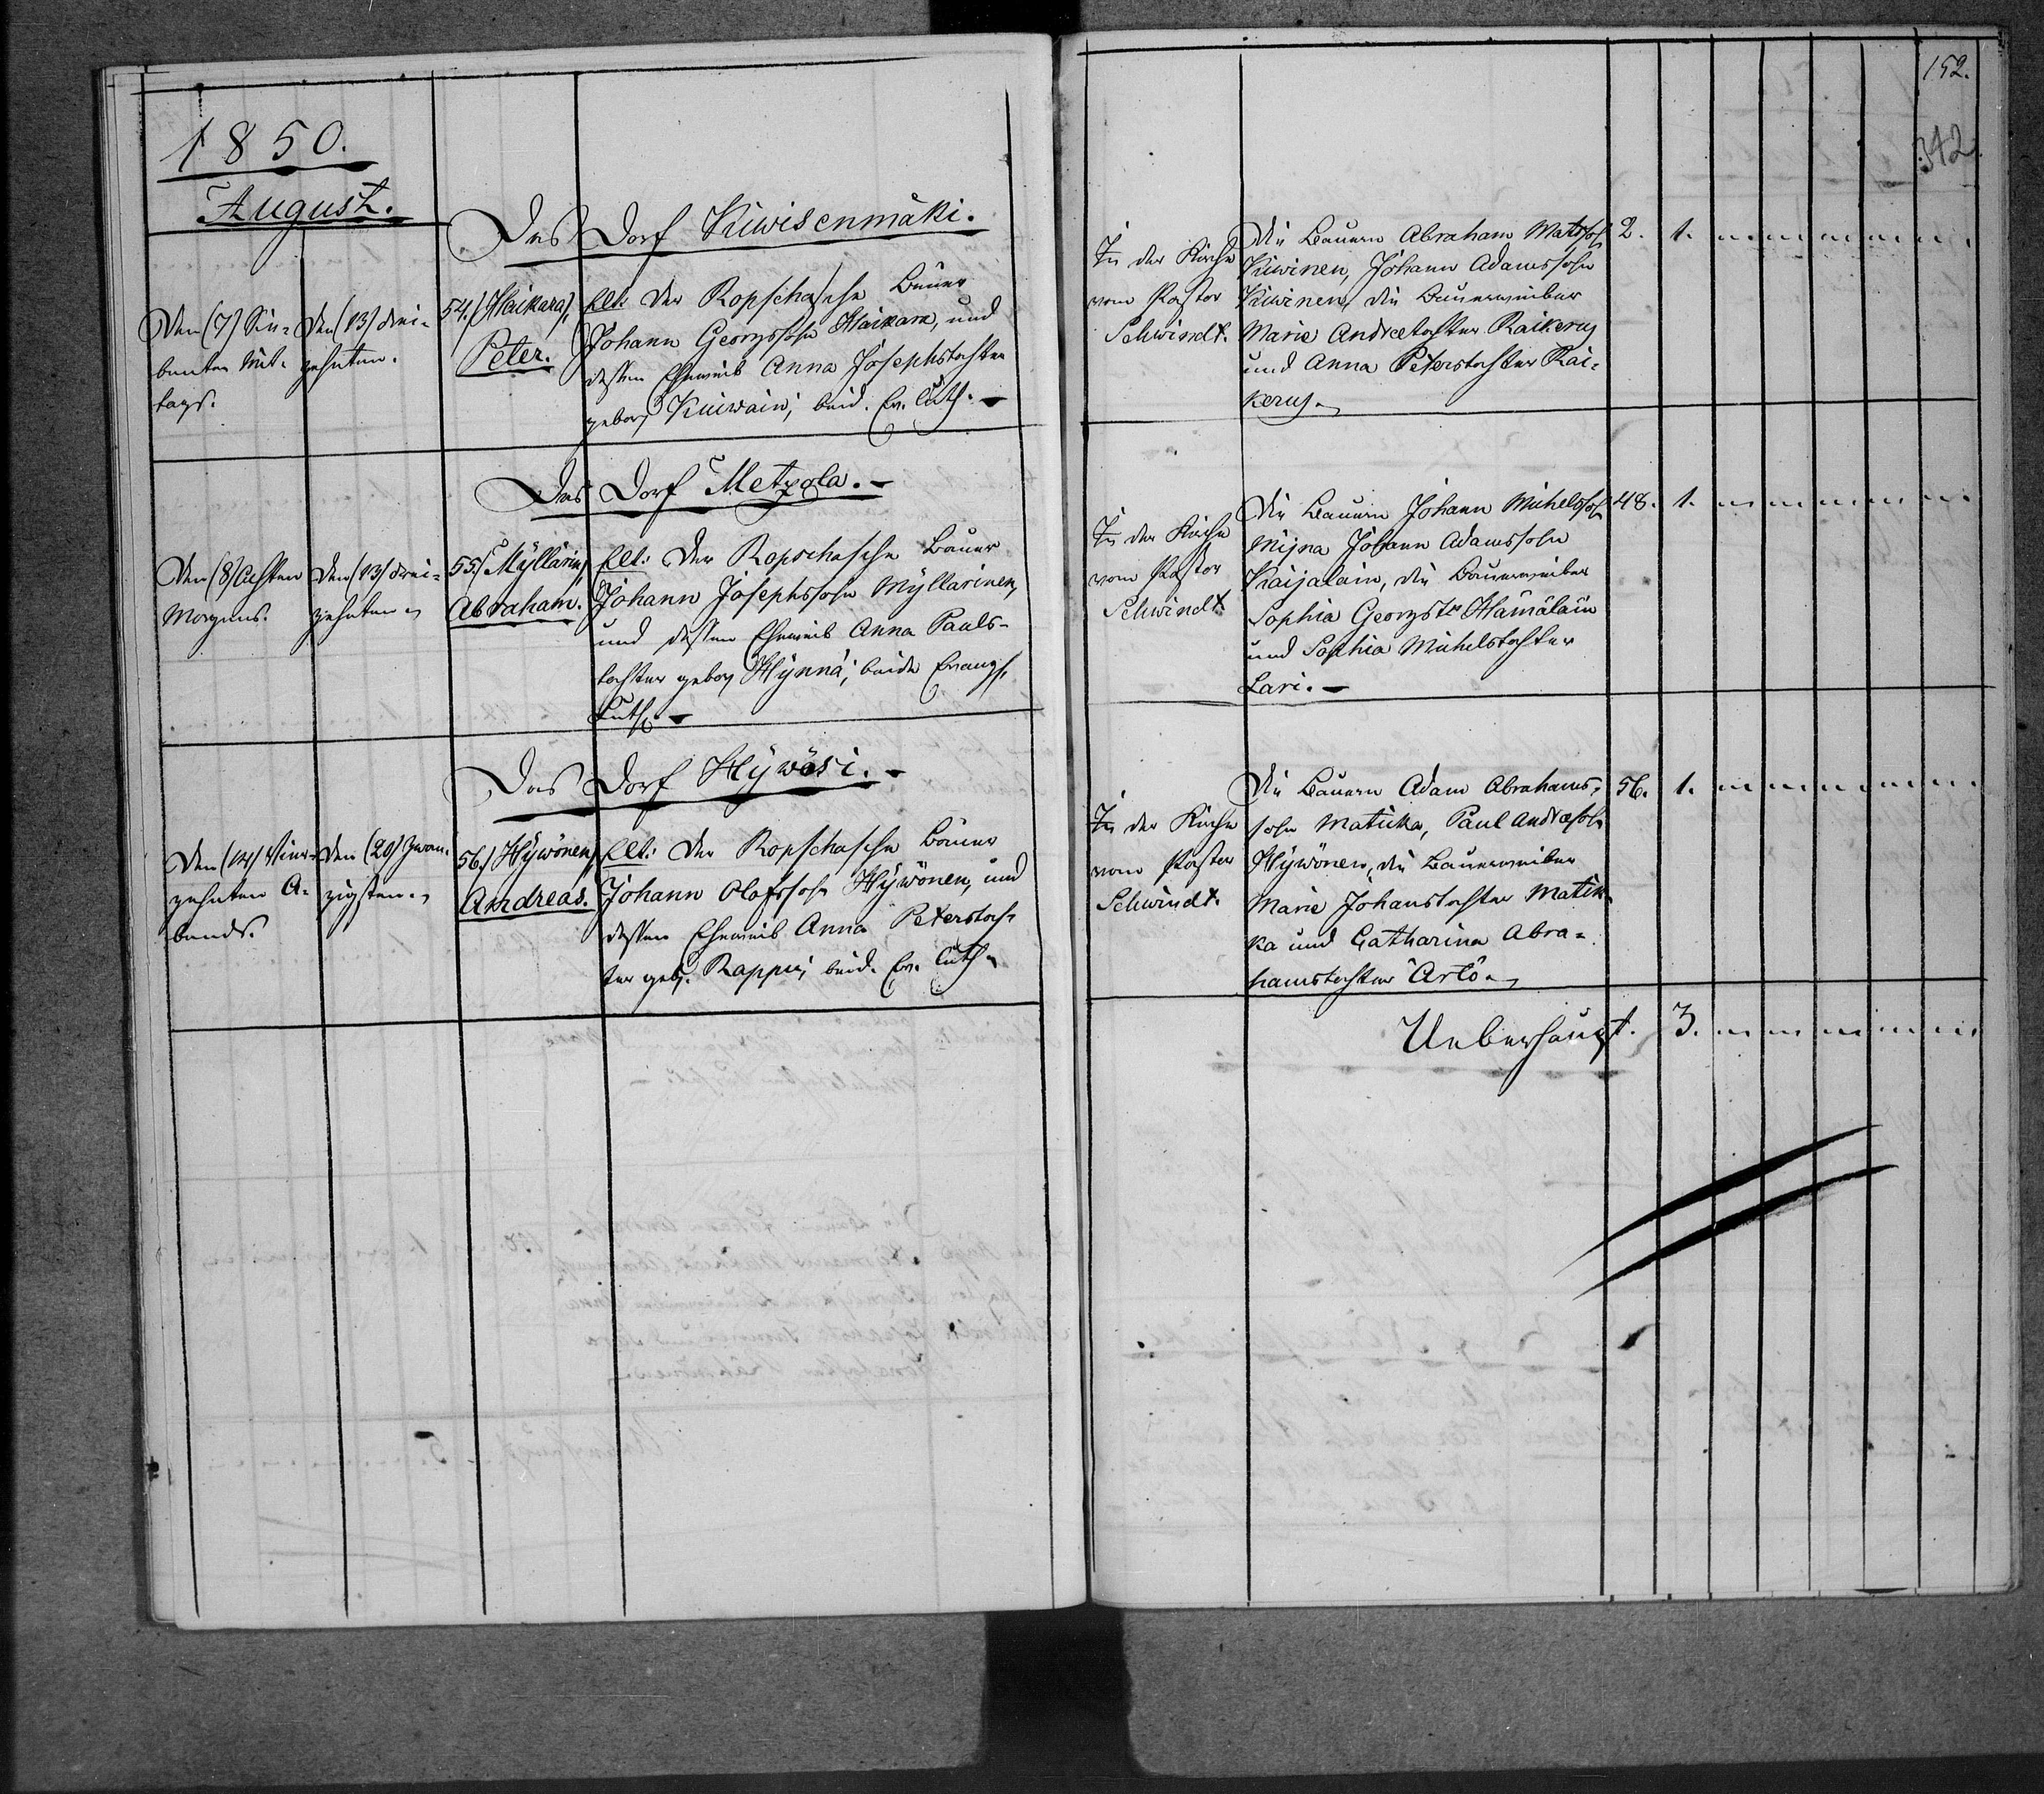 152.
342.
1850.
August.
Das Dorf Kiwisenmäki.
Den (7) Sie-
benten Mit-
tags.
Den (13) drei-
zehnten.
54.) (Haikara),
Peter.
Elt: Der Ropschasche Bauer
Johann Georgssohn Haikara, und
dessen Eheweib Anna Josephstochter
gebor. Kuiwain; beid. Ev. Luth. –
In der Kirche
vom Pastor
Schwindt.
Die Bauern Abraham Matssohn
Kiwinen, Johann Adamssohn
Kiwinen, die Bauerweiber
Marie Andreetochter Raikerus
und Anna Peterstochter Rai-
kerus.
2.
1.
Das Dorf Metzola. –
Den (8) Achten
Morgens.
Den (13) drei-
zehnten.
55.) Mÿllärin,
Abraham.
Elt: Der Ropschasche Bauer
Johann Josephssohn Mÿllarinen,
und dessen Eheweib Anna Pauls-
tochter gebor. Hÿnnä; beide Evangl.
Luth. –
In der Kirche
vom Pastor
Schwindt
Die Bauern Johann Michelssohn
Mijna Johann Adamssohn
Kaijalain, die Bauerweiber
Sophia Georgstr. Hämäläin
und Sophia Michelstochter
Lari. –
48.
1.
Das Dorf Hÿwösi. –
Den (14) Vier-
zehnten A-
bends.
Den (20) Zwan-
zigsten.
56.) Hÿwönen,
Andreas.
Elt: Der Ropschasche Bauer
Johann Olofssohn Hÿwönen, und
dessen Eheweib Anna Peterstoch-
ter geb. Rappu; beid. Ev. Luth.
In der Kirche
vom Pastor
Schwindt.
Die Bauern Adam Abrahams-
sohn Matikka, Paul Andreesohn
Hÿwönen, die Bauerweiber
Marie Johanstochter Matik-
ka und Catharina Abra-
hamstochter Arlö.
56.
1.
Ueberhaupt. 3.